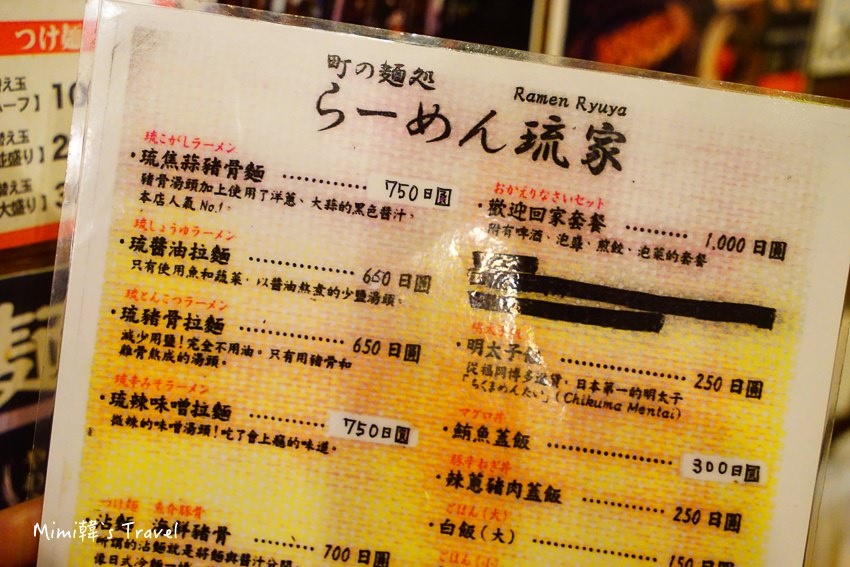 つけ麺
替え玉
ーフ】 10
替え玉
並盛り】 2
替え玉
大盛り】 3
町の麺処
Ramen Ryuya
らーめん 琉家
琉こがしラーメン
・琉焦蒜豬骨麵 ............ 750日圓
豬骨湯頭加上使用了洋蔥、大蒜的黑色醬汁。
本店人氣No.1。
琉しょうゆラーメン
・琉醬油拉麵 ............ 660日圓
只有使用魚和蔬菜，以醬油熬煮的少鹽湯頭。
琉とんこつラーメン
・琉豬骨拉麵 ............ 650日圓
減少用鹽！完全不用油。只有用豬骨和
雞骨熬成的湯頭。
琉辛みそラーメン
・琉辣味噌拉麵 ............ 750日圓
微辣的味噌湯頭！吃了會上癮的味道。
つけ麺 魚介豚骨
海鮮豬骨 ............ 700日圓
所謂的沾麵就是將麵與醬汁分開
像日式冷麵一樣
おかえりなさいセット
・歡迎回家套餐 ......... 1,000日圓
附有啤酒、泡麵、煎餃、泡菜的套餐
・明太子 ............ 250日圓
從福岡博多進貨，日本第一的明太子
「ちくまめんたい」(Chikuma Mentai)
マグロ丼
・鮪魚蓋飯 ............ 300日圓
豚辛ねぎ丼
・辣蔥豬肉蓋飯 ............ 250日圓
ごはん(大)
・白飯(大) ............ 150日圓
ごはん(小)
Mimi韓's Travel